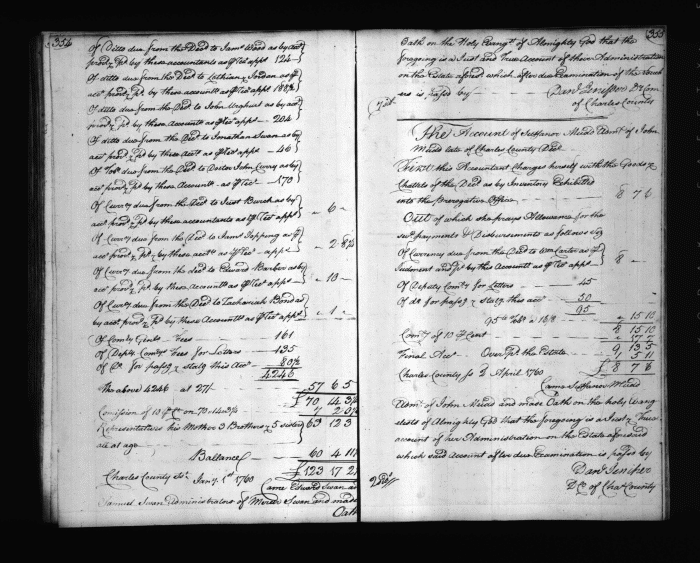 354
Of Ditto due from the Decd to James Wood as by acct
provd & pd by these accountants as pr Rect appt 124
Of ditto due from the Decd to Lothian & Jordan as pr
acct provd & pd by these Accountants as pr Rect appt 188½
Of ditto due from the Decd to John Urquhart as by acct
provd & pd by these Accountts as pr Rect appt 204
Of ditto due from the Decd to Jonathan Swan as by
acct provd & pd by these Acctts as pr Rect appt 46
Of Tobo due from the Decd to Doctor John Curry as by
acct provd & pd by these Accountts as pr Rect 170
Of Currcy due from the Decd to Just Burch as by
acct provd & pd by these accountants as pr Rect appt " 6 "
Of Currcy due from the Decd to James Topping as pr
acct provd & pd by these acctts as pr Rect appt " 2 8½
Of Currcy due from the Decd to Edward Barber as by
acct provd & pd by these Accountts as pr Rect appt " 10 "
Of Currcy due from the Decd to Zachariah Bond as
by acct provd & pd by these Accountts as pr Rect appt " 1 "
Of Comty Genl Fees 161
Of Depty Comtys Fees for Letters 135
Of do for passg & statg this Acct 80½
4246
The above 4246 at 27/ 57 6 5
£ 70 14 3½
Comission of 10 pr Ct on 70 14 3½ 7 2 0½
Representatives his Mother 3 Brothers & 5 sisters 63 12 3
all at age
Ballance 60 4 11½
£ 123 17 2½
Charles County Sct Jany 1st 1760
Came Edward Swan and
Samuel Swan Administrators of Swan and made
Oath
355
Oath on the Holy Evangts of Almighty God that the
foregoing is a Just and True Account of their Administration
on the Estate aforesd which after due Examination of the Vouch
ers is passed by Danl Jenifer D Com
of Charles County
The Account of Susanna Meads Admx of John
Meads late of Charles County Decd
Vizt this Accountant Charges herself with the Goods &
Chattels of the Decd as by Inventory Exhibited
into the Prerogative Office 8 7 6
Out of which she prays Allowance for the
sevl payments & Disbursements as follows viz
Of Currency due from the Decd to Wm Carter as pr
Judment and pd by this Accountt as pr Rect appt 8 "
Of Deputy Comty for Letters 45
Of do for passg & statg this acct 50
95
95 lb Tobo a 16/8 " 15 10
8 15 10
Comy of 10 pr Cent " 17 7
9 13 5
Final Acct Over pd the Estate 1 5 11
£ 8 7 6
Charles County Ss 2 April 1760
Came Susanna Meads
Admx of John Meads and made Oath on the holy Evang
elists of Almighty God that the foregoing is a Just & True
account of her Administration on the Estate aforesaid
which said account after due Examination is passed by
Danl Jenifer
DC of Chas County